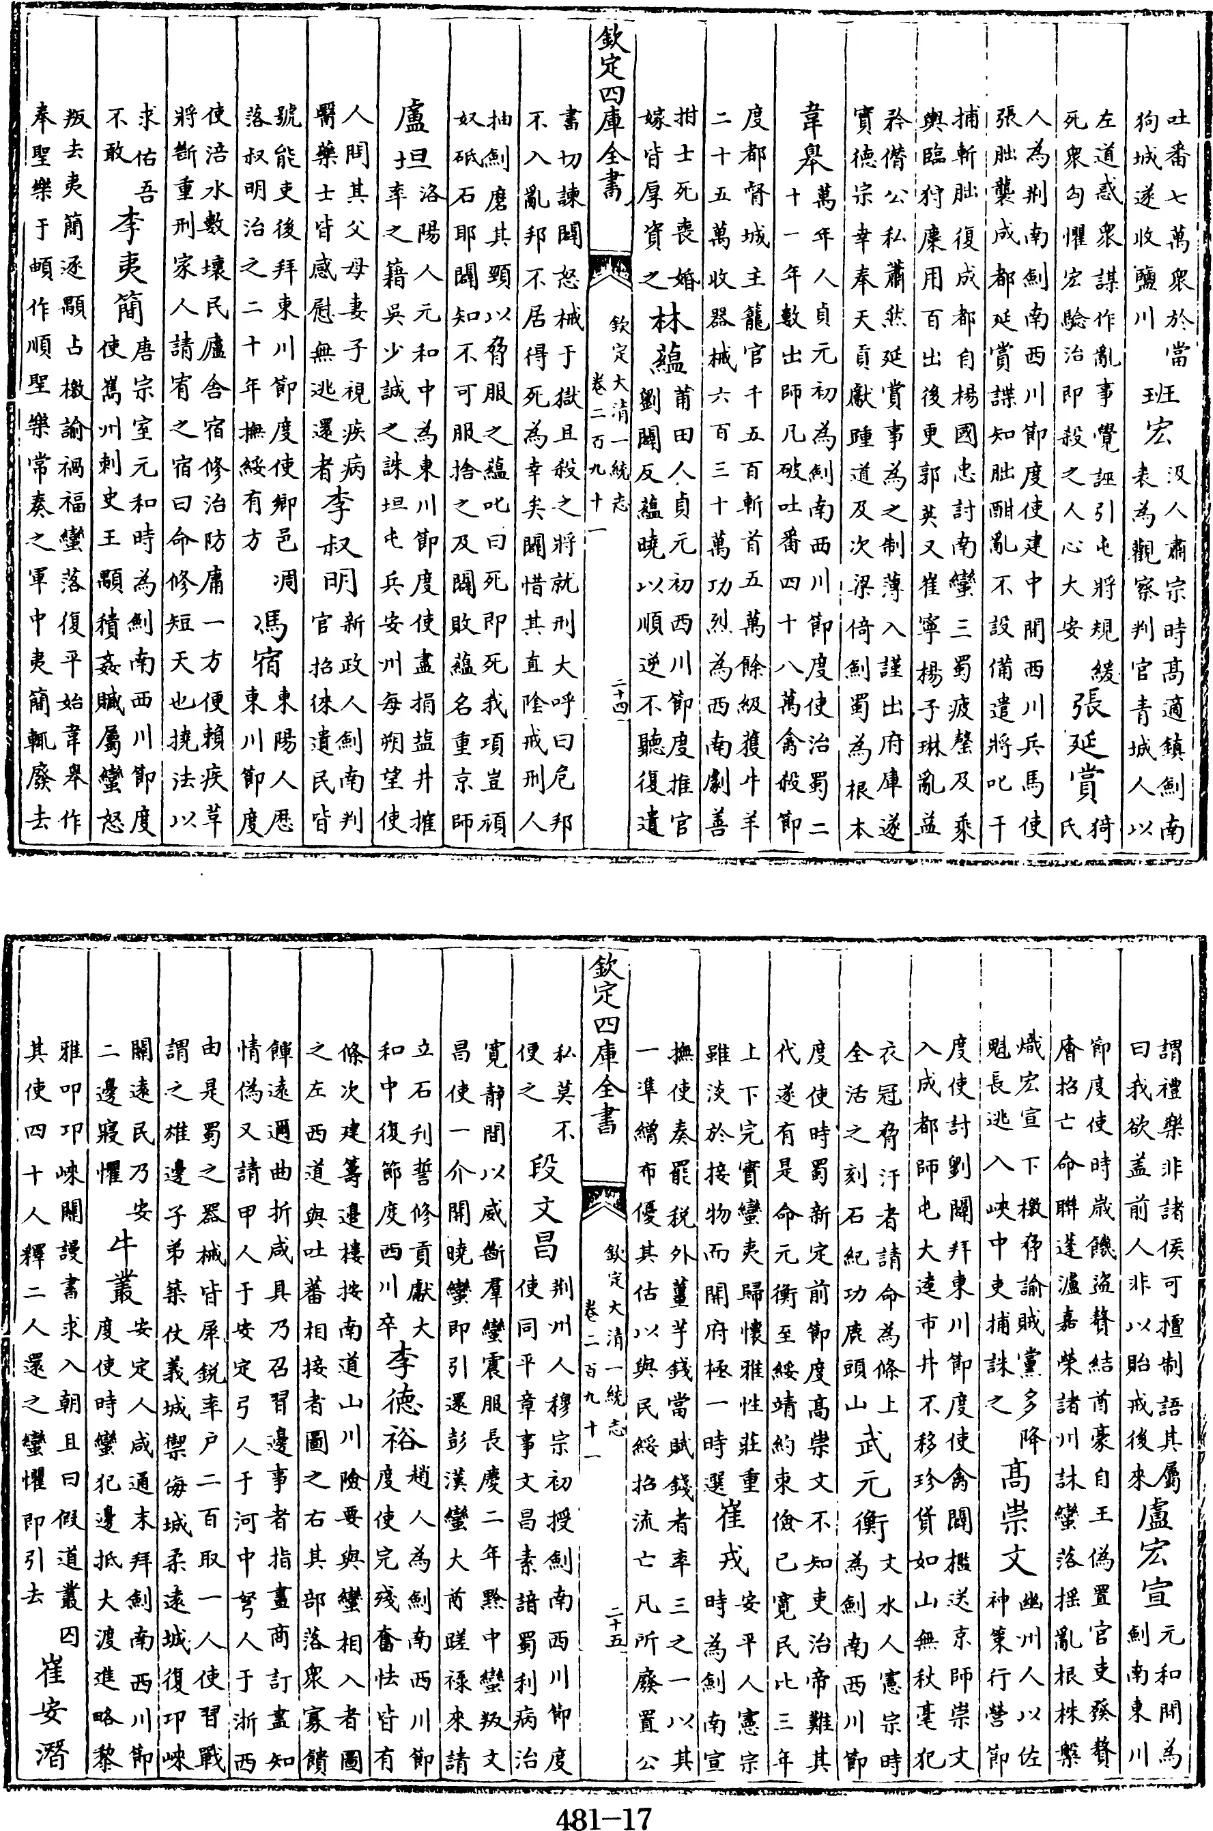 吐番七萬衆於當
狗城遂收鹽川
班宏
汲人肅宗時髙適鎮劍南
表為觀察判官青城人以
左道惑衆謀作亂事覺誣引屯將規緩
死衆匈懼宏驗治即殺之人心大安
張延賞
猗
氏
人為荆南劍南西川節度使建中間西川兵馬使
張朏襲成都延賞諜知朏酣亂不設備遣將叱干
捕斬朏復成都自楊國忠討南蠻三蜀疲罄及乘
輿臨狩廩用百出後更郭英乂崔寧楊子琳亂益
矜僭公私蕭然延賞事為之制薄入謹出府庫遂
實德宗幸奉天貢獻踵道及次梁倚劍蜀為根本
韋臯
萬年人貞元初為劍南西川節度使治蜀二
十一年數出師凡破吐番四十八萬禽殺節
度都督城主籠官千五百斬首五萬餘級獲牛羊
二十五萬收器械六百三十萬功烈為西南劇善
拊士死喪婚
嫁皆厚資之
林蘊
莆田人貞元初西川節度推官
劉闢反蘊曉以順逆不聽復遺
欽定四庫全書
欽定大清一統志
卷二百九十一
二十四
書切諫闢怒械于獄且殺之將就刑大呼曰危邦
不入亂邦不居得死為幸矣闢惜其直陰戒刑人
抽劍磨其頸以脅服之蘊叱曰死即死我項豈頑
奴砥石耶闢知不可服捨之及闢敗蘊名重京師
盧坦
洛陽人元和中為東川節度使盡捐盐井搉
率之籍吳少誠之誅坦屯兵安州每朔望使
人問其父母妻子視疾病
醫藥士皆感慰無逃還者
李叔明
新政人劍南判
官招徠遺民皆
號能吏後拜東川節度使鄉邑凋
落叔明治之二十年撫綏有方
馮宿
東陽人歴
東川節度
使涪水數壞民廬舍宿修治防庸一方便賴疾草
將斷重刑家人請宥之宿曰命修短天也撓法以
求佑吾
不敢
李夷簡
唐宗室元和時為劍南西川節度
使嶲州刺史王顒積姦贓屬蠻怒
叛去夷簡逐顒占檄諭禍福蠻落復平始韋臯作
奉聖樂于頔作順聖樂常奏之軍中夷簡輒廢去
謂禮樂非諸侯可擅制語其屬
曰我欲盖前人非以貽戒後來
盧宏宣
元和間為
劍南東川
節度使時歳饑盜贅結酋豪自王偽置官吏發贅
廥招亡命聯蓬瀘嘉榮諸州訹蠻落揺亂根株槃
熾宏宣下檄脅諭賊黨多降
魁長逃入峽中吏捕誅之
髙崇文
幽州人以佐
神策行營節
度使討劉闢拜東川節度使禽闢檻送京師崇文
入成都師屯大逵市井不移珍貨如山無秋毫犯
衣冠脅汙者請命為條上
全活之刻石紀功鹿頭山
武元衡
文水人憲宗時
為劍南西川節
度使時蜀新定前節度髙崇文不知吏治帝難其
代遂有是命元衡至綏靖約束儉已寛民比三年
上下完實蠻夷歸懷雅性莊重
雖淡於接物而開府極一時選
崔戎
安平人憲宗
時為劍南宣
撫使奏罷税外薑芋錢當賦錢者率三之一以其
一準繒布優其估以與民綏招流亡凡所廢置公
欽定四庫全書
欽定大清一統志
卷二百九十一
二十五
私莫不
便之
段文昌
荆州人穆宗初授劍南西川節度
使同平章事文昌素諳蜀利病治
寛静間以威斷羣蠻震服長慶二年黔中蠻叛文
昌使一介開曉蠻即引還彭漢蠻大酋蹉祿來請
立石刋誓修貢獻大
和中復節度西川卒
李德裕
趙人為劍南西川節
度使完殘奮怯皆有
條次建籌邊樓按南道山川險要與蠻相入者圖
之左西道與吐蕃相接者圖之右其部落衆寡饋
餫遠邇曲折咸具乃召習邊事者指畫商訂盡知
情偽又請甲人于安定弓人于河中弩人于浙西
由是蜀之器械皆犀鋭率户二百取一人使習戰
謂之雄邊子弟築仗義城禦侮城柔遠城復邛崍
關遠民乃安
二邊寢懼
牛叢
安定人咸通末拜劍南西川節
度使時蠻犯邊抵大渡進略黎
雅叩邛崍關謾書求入朝且曰假道叢囚
其使四十人釋二人還之蠻懼即引去
崔安潛
481-17